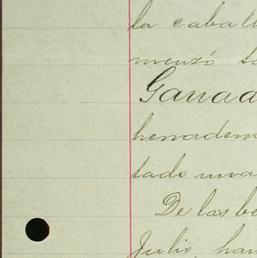 la caball
menzó
Ganad
herradem
tado una
De las be
Julio, ha